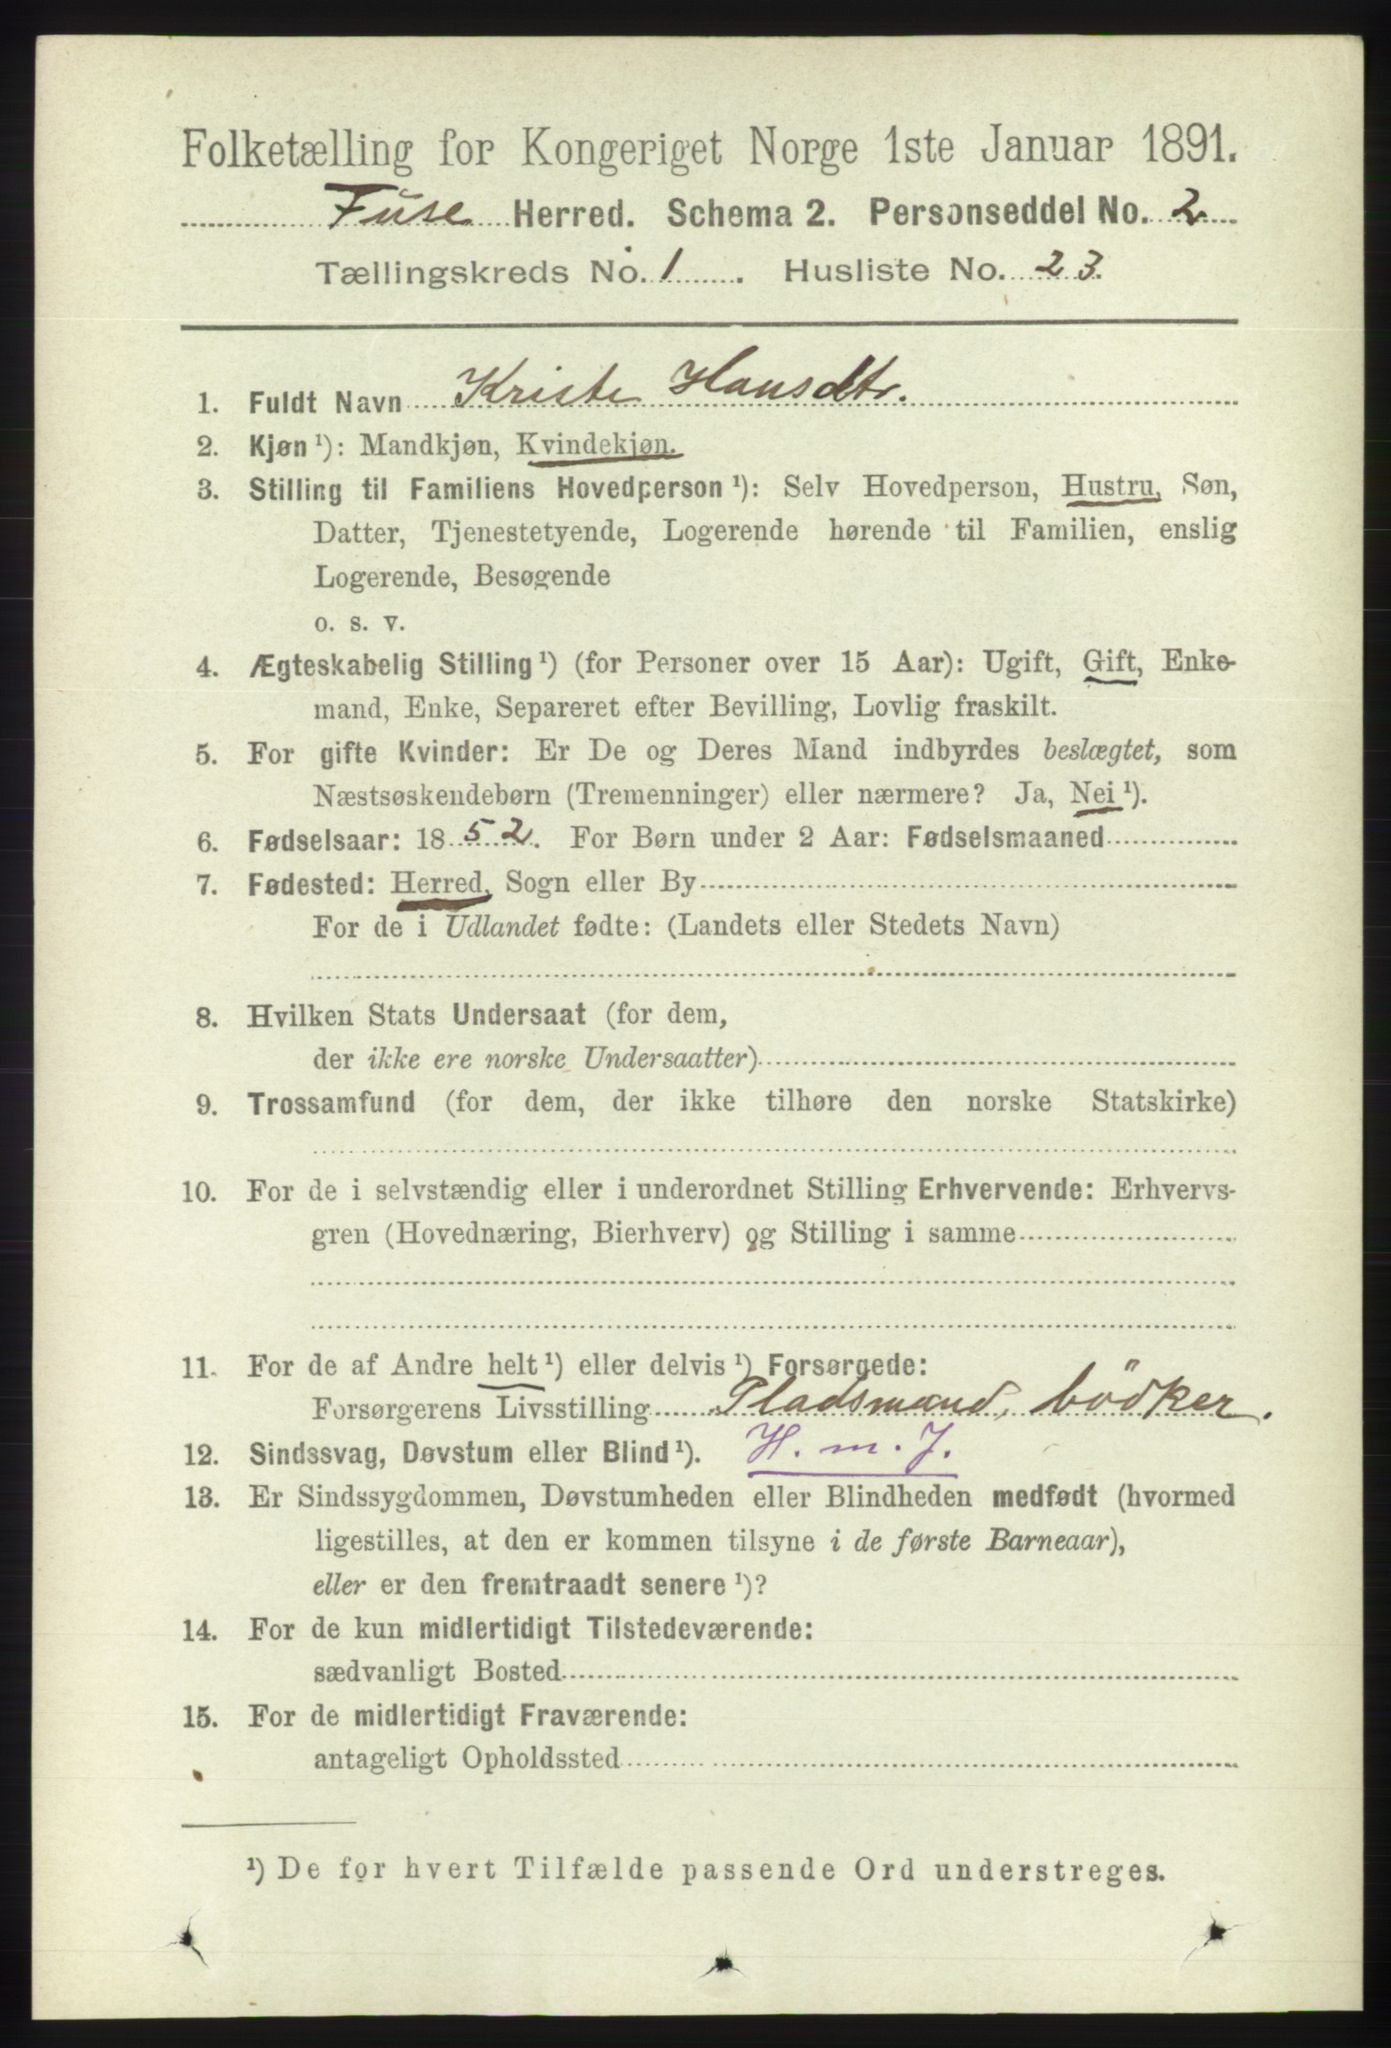 Folketælling for Kongeriget Norge 1ste Januar 1891.
Fuse Herred. Schema 2. Personseddel No. 2
Tællingskreds No. 1. Husliste No. 23.
1. Fuldt Navn Kriste Hansdtr.
2. Kjøn ¹): Mandkjøn, Kvindekjøn.
3. Stilling til Familiens Hovedperson ¹): Selv Hovedperson, Hustru, Søn,
Datter, Tjenestetyende, Logerende hørende til Familien, enslig
Logerende, Besøgende
o. s. v.
4. Ægteskabelig Stilling ¹) (for Personer over 15 Aar): Ugift, Gift, Enke-
mand, Enke, Separeret efter Bevilling, Lovlig fraskilt.
5. For gifte Kvinder: Er De og Deres Mand indbyrdes beslægtet, som
Næstsøskendebørn (Tremenninger) eller nærmere? Ja, Nei ¹).
6. Fødselsaar: 1852. For Børn under 2 Aar: Fødselsmaaned
7. Fødested: Herred, Sogn eller By
For de i Udlandet fødte: (Landets eller Stedets Navn)
8. Hvilken Stats Undersaat (for dem,
der ikke ere norske Undersaatter)
9. Trossamfund (for dem, der ikke tilhøre den norske Statskirke)
10. For de i selvstændig eller i underordnet Stilling Erhvervende: Erhvervs-
gren (Hovednæring, Bierhverv) og Stilling i samme
11. For de af Andre helt ¹) eller delvis ¹) Forsørgede:
Forsørgerens Livsstilling Pladsmand, bödker.
12. Sindssvag, Døvstum eller Blind ¹). H. m. J.
13. Er Sindssygdommen, Døvstumheden eller Blindheden medfødt (hvormed
ligestilles, at den er kommen tilsyne i de første Barneaar),
eller er den fremtraadt senere ¹)?
14. For de kun midlertidigt Tilstedeværende:
sædvanligt Bosted
15. For de midlertidigt Fraværende:
antageligt Opholdssted
¹) De for hvert Tilfælde passende Ord understreges.